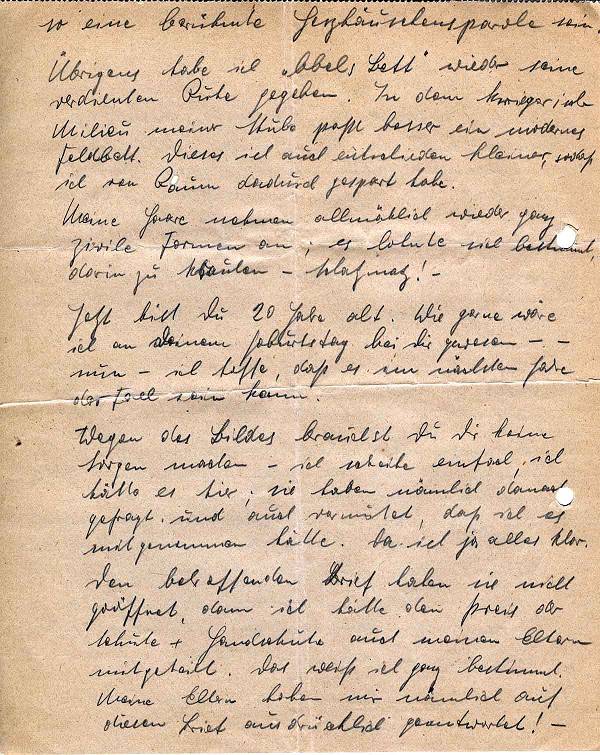 so eine berühmte Herzhäuschensparole sein.
Übrigens habe ich „Abels Bett" wieder seine
verdienten Ruhe gegeben. In dem kriegerische
Milieu meiner Stube paßt besser ein modernes
Feldbett. Dieses ist auch entschieden kleiner, sodaß
ich von Raum dadurch gespart habe.
Meine Haare nehmen allmählich wieder ganz
zivile Formen an; es lohnte sich bestimmt,
darin zu kraulen –
Jetzt bist Du 20 Jahre alt. Wie gerne wäre
ich an Deinem Geburtstag bei Dir gewesen – –
nun – ich hoffe, daß es im nächsten Jahre
der Fall sein kann.
Wegen des Bildes brauchst Du Dir keine
Sorgen machen – ich schreibe einfach, ich
hätte es hier; sie haben nämlich danach
gefragt und auch vermutet, daß ich es
mitgenommen hätte. Da ist ja alles klar.
Den betreffenden Brief haben sie nicht
geöffnet, denn ich hätte den Preis der
Schuhe + Handschuhe auch meinen Eltern
mitgeteilt. Das weiß ich ganz bestimmt.
Meine Eltern haben mir nämlich auf
diesen Brief ausdrücklich geantwortet! –